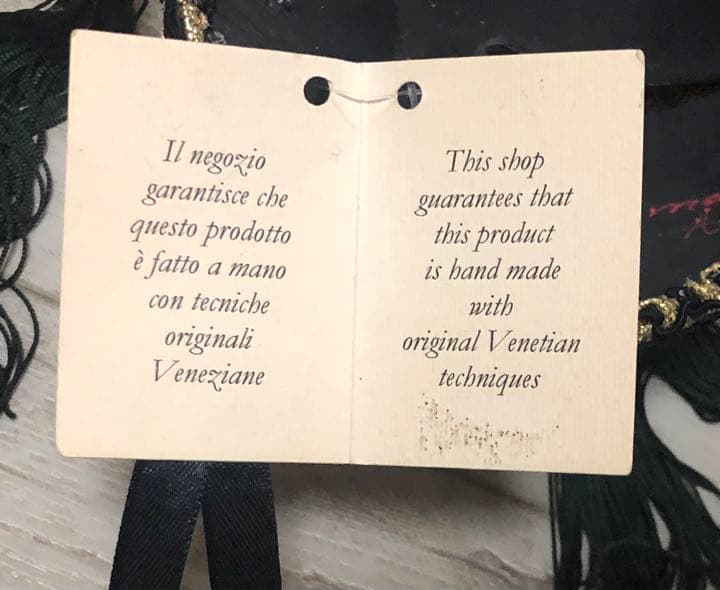 Il negozio
garantisce che
questo prodotto
è fatto a mano
con tecniche
originali
Veneziane
This shop
guarantees that
this product
is hand made
with
original Venetian
techniques